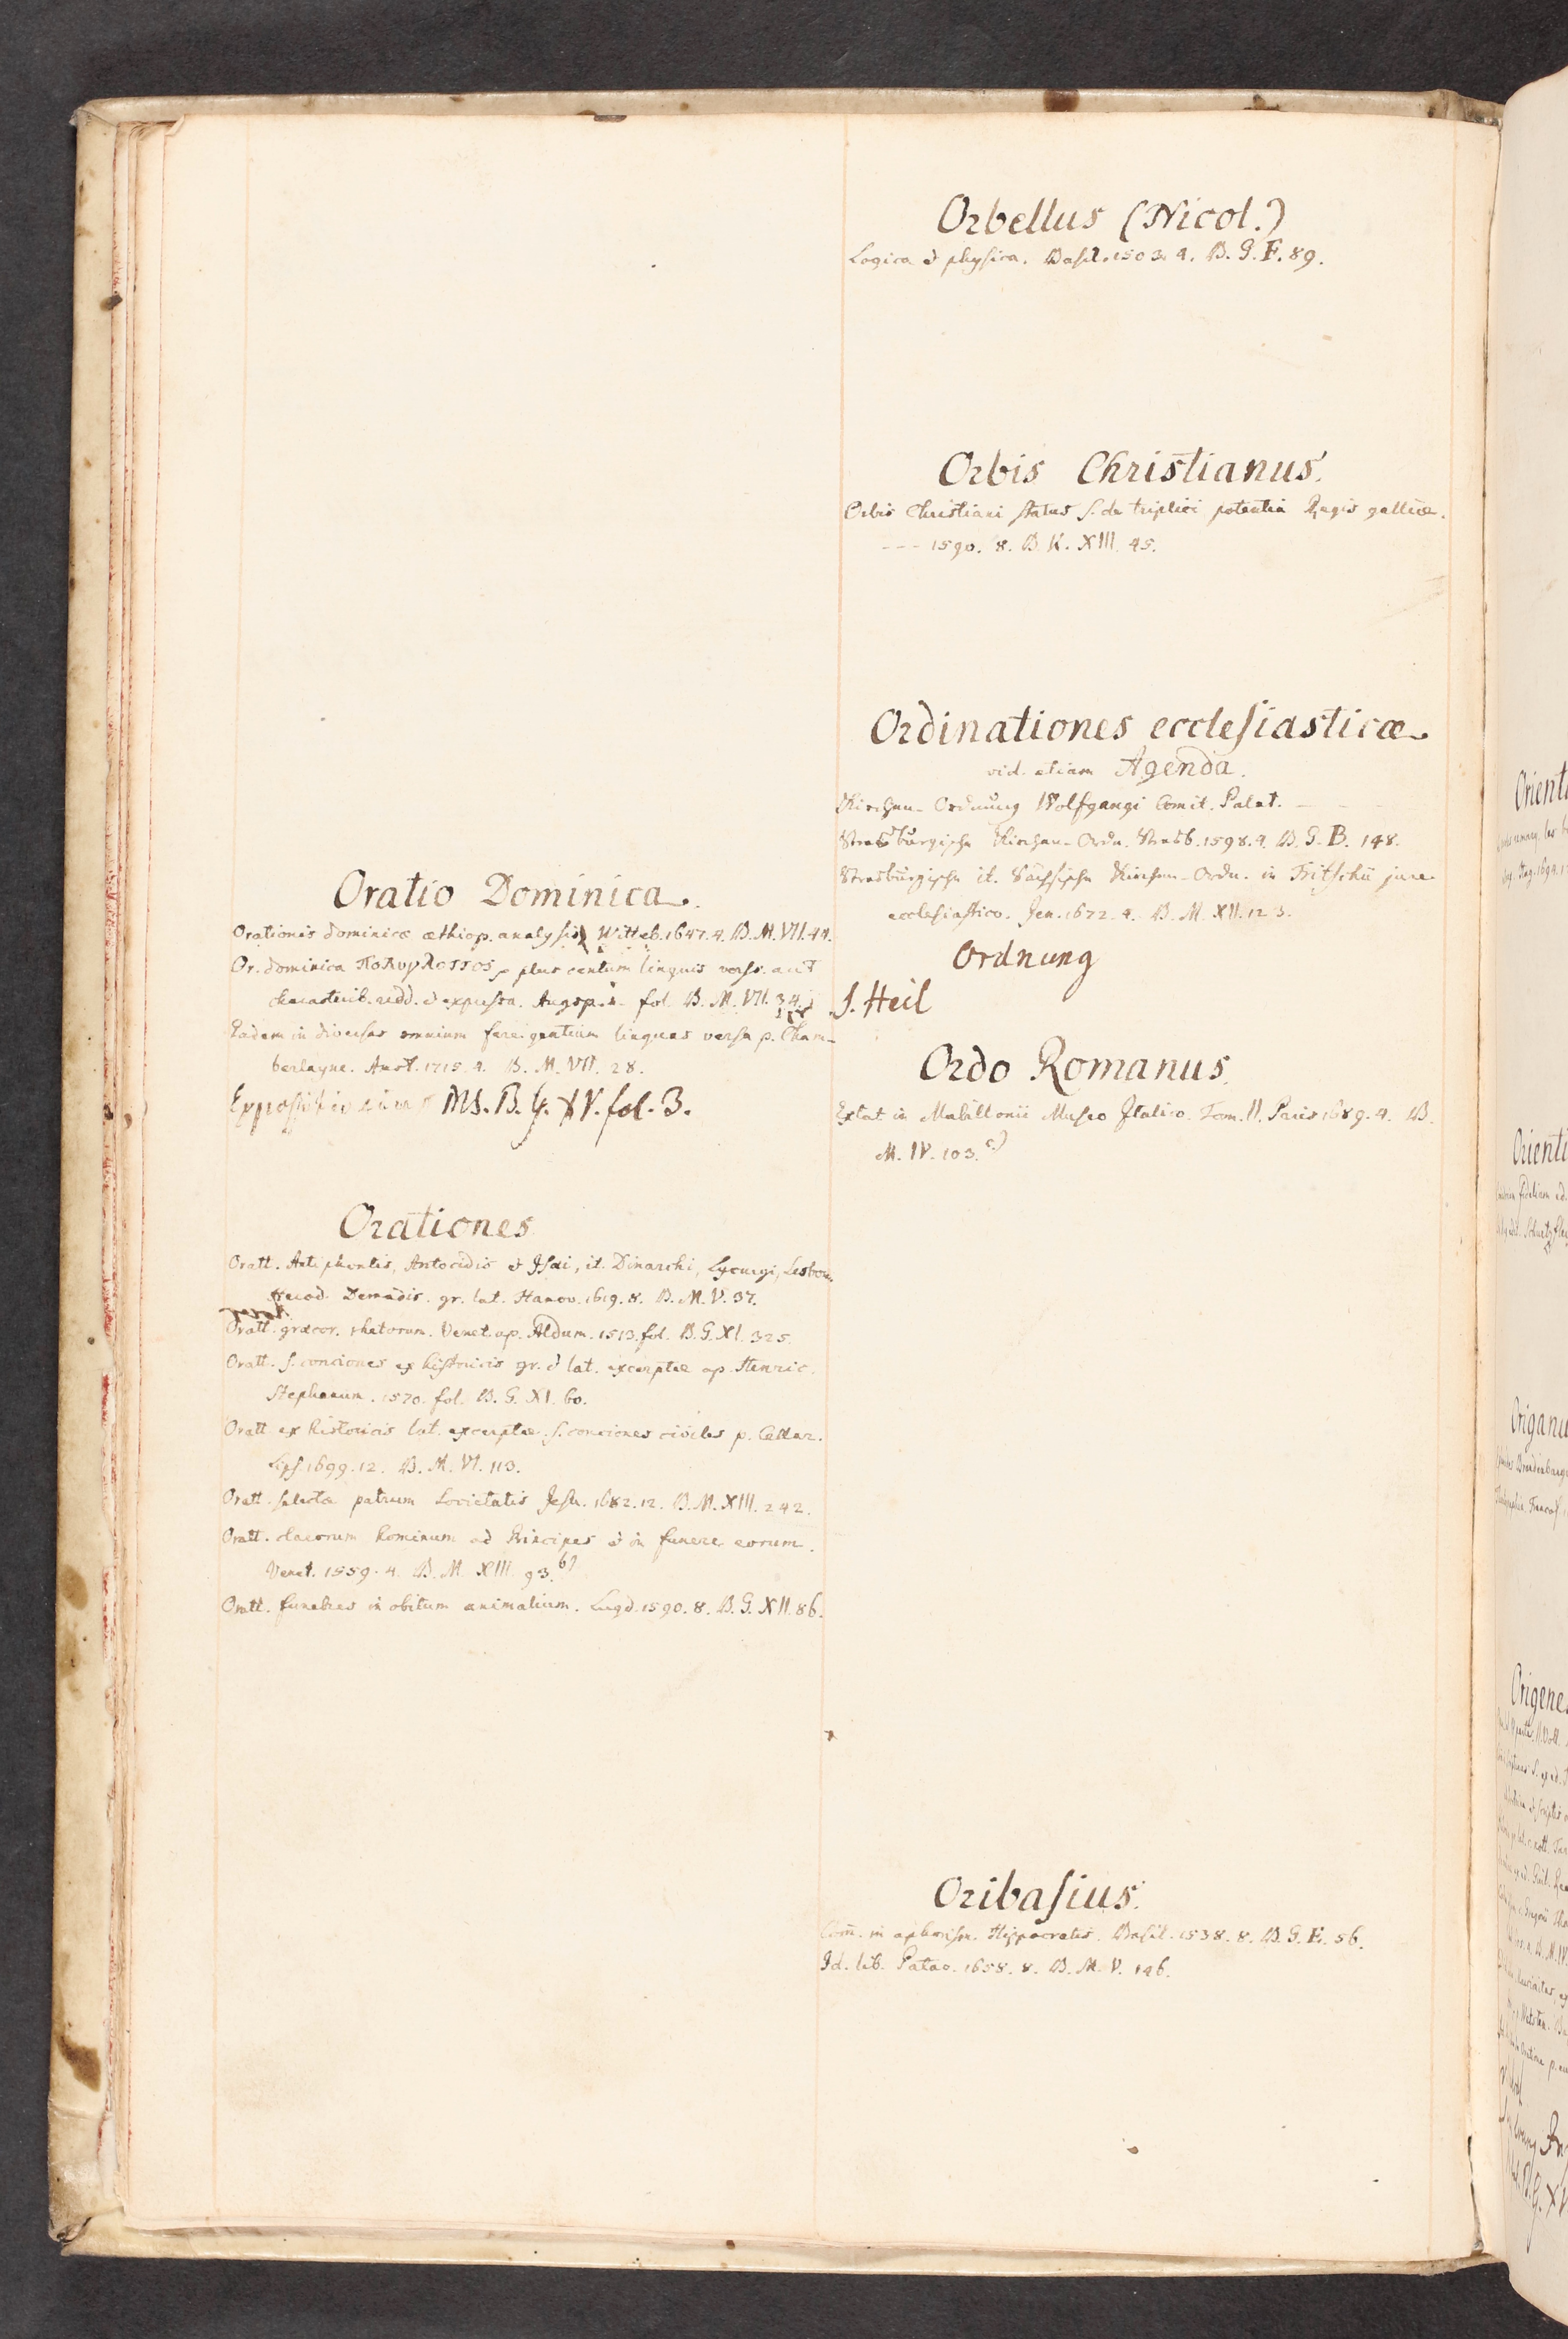 Oratio Dominica.
Orationis dominicæ æthiop. analysis Witteb. 1647. 4. B. M. VII. 44.
Or. dominica πολυγλοττος, plus centum linguis vers. aut
characterib. redd. & expressa. Augsp. fol. B. M. VII. 34.
Eadem in diversas omnium fere gentium linguas versa p. Cham-
berlayne. Amst. 1715. 4. B. M. VII. 28.
Expositio MS. B. G. XV. fol. 3.
Orationes
Oratt. Antiphontis, Antocidis & Isæi, it. Dinarchi, Lycurgi, Lesbon.
Herod. Demadis. gr. lat. Hanov. 1619. 8. B. M. V. 37.
Oratt. græcor. rhetorum. Venet. ap. Aldum. 1513. fol. B. G. XI. 325.
Oratt. s. conciones ex historicis gr. & lat. excerptæ ap. Henric.
Stephanum. 1570. fol. B. G. XI. 60.
Oratt. ex historicis lat. excerptæ s. conciones civiles p. Cellar.
Lips. 1699. 12. B. M. VI. 113.
Oratt. selectæ patrum Societatis Jesu. 1682. 12. B. M. XIII. 242.
Oratt. clarorum hominum ad Principes & in funere eorum.
Venet. 1559. 4. B. M. XIII. 93. b)
Oratt. funebres in obitum animalium. Lugd. 1590. 8. B. G. XII. 86.
Orbellus (Nicol.)
Logica & physica. Basil. 1503. 4. B. G. F. 89.
Orbis Christianus.
Orbis Christiani status s. de triplici potentia Regis galliæ.
--- 1590. 8. B. K. XIII. 45.
Ordinationes ecclesiasticæ
vid. etiam Agenda.
Kirchen-Ordnung Wolfgangi Comit. Palat. — — —
Strasburgische Kirchen-Ordn. Strasb. 1598. 4. B. G. B. 148.
Strasburgische it. Sächsische Kirchen-Ordn. in Fritschii jure
ecclesiastico. Jen. 1672. 4. B. M. XII. 123.
Ordnung
S. Heil
Ordo Romanus.
Extat in Mabillonii Museo Italico. Tom. II. Paris 1689. 4. B.
M. IV. 103. c)
Oribasius.
Com̄. in aphorism. Hippocratis. Basil. 1538. 8. B. G. E. 56.
Id. lib. Patav. 1658. 8. B. M. V. 146.